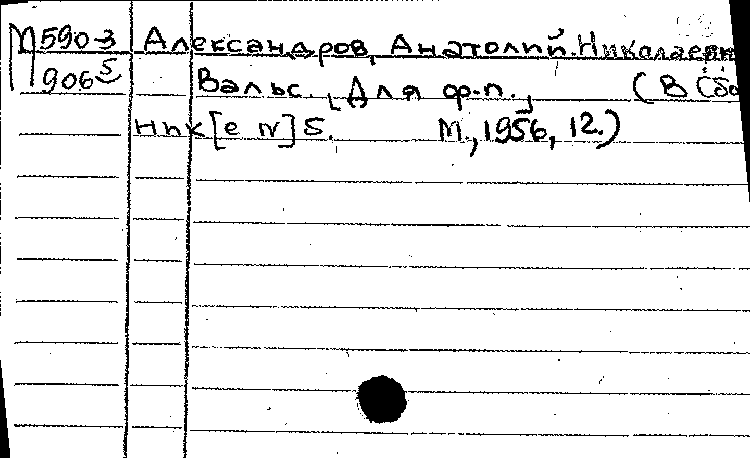 М590-3 Александров, Анатолий Николаевич
906 5 Вальс. [Для ф-п.] (В сбо
ник [е №] 5. М., 1956, 12.)